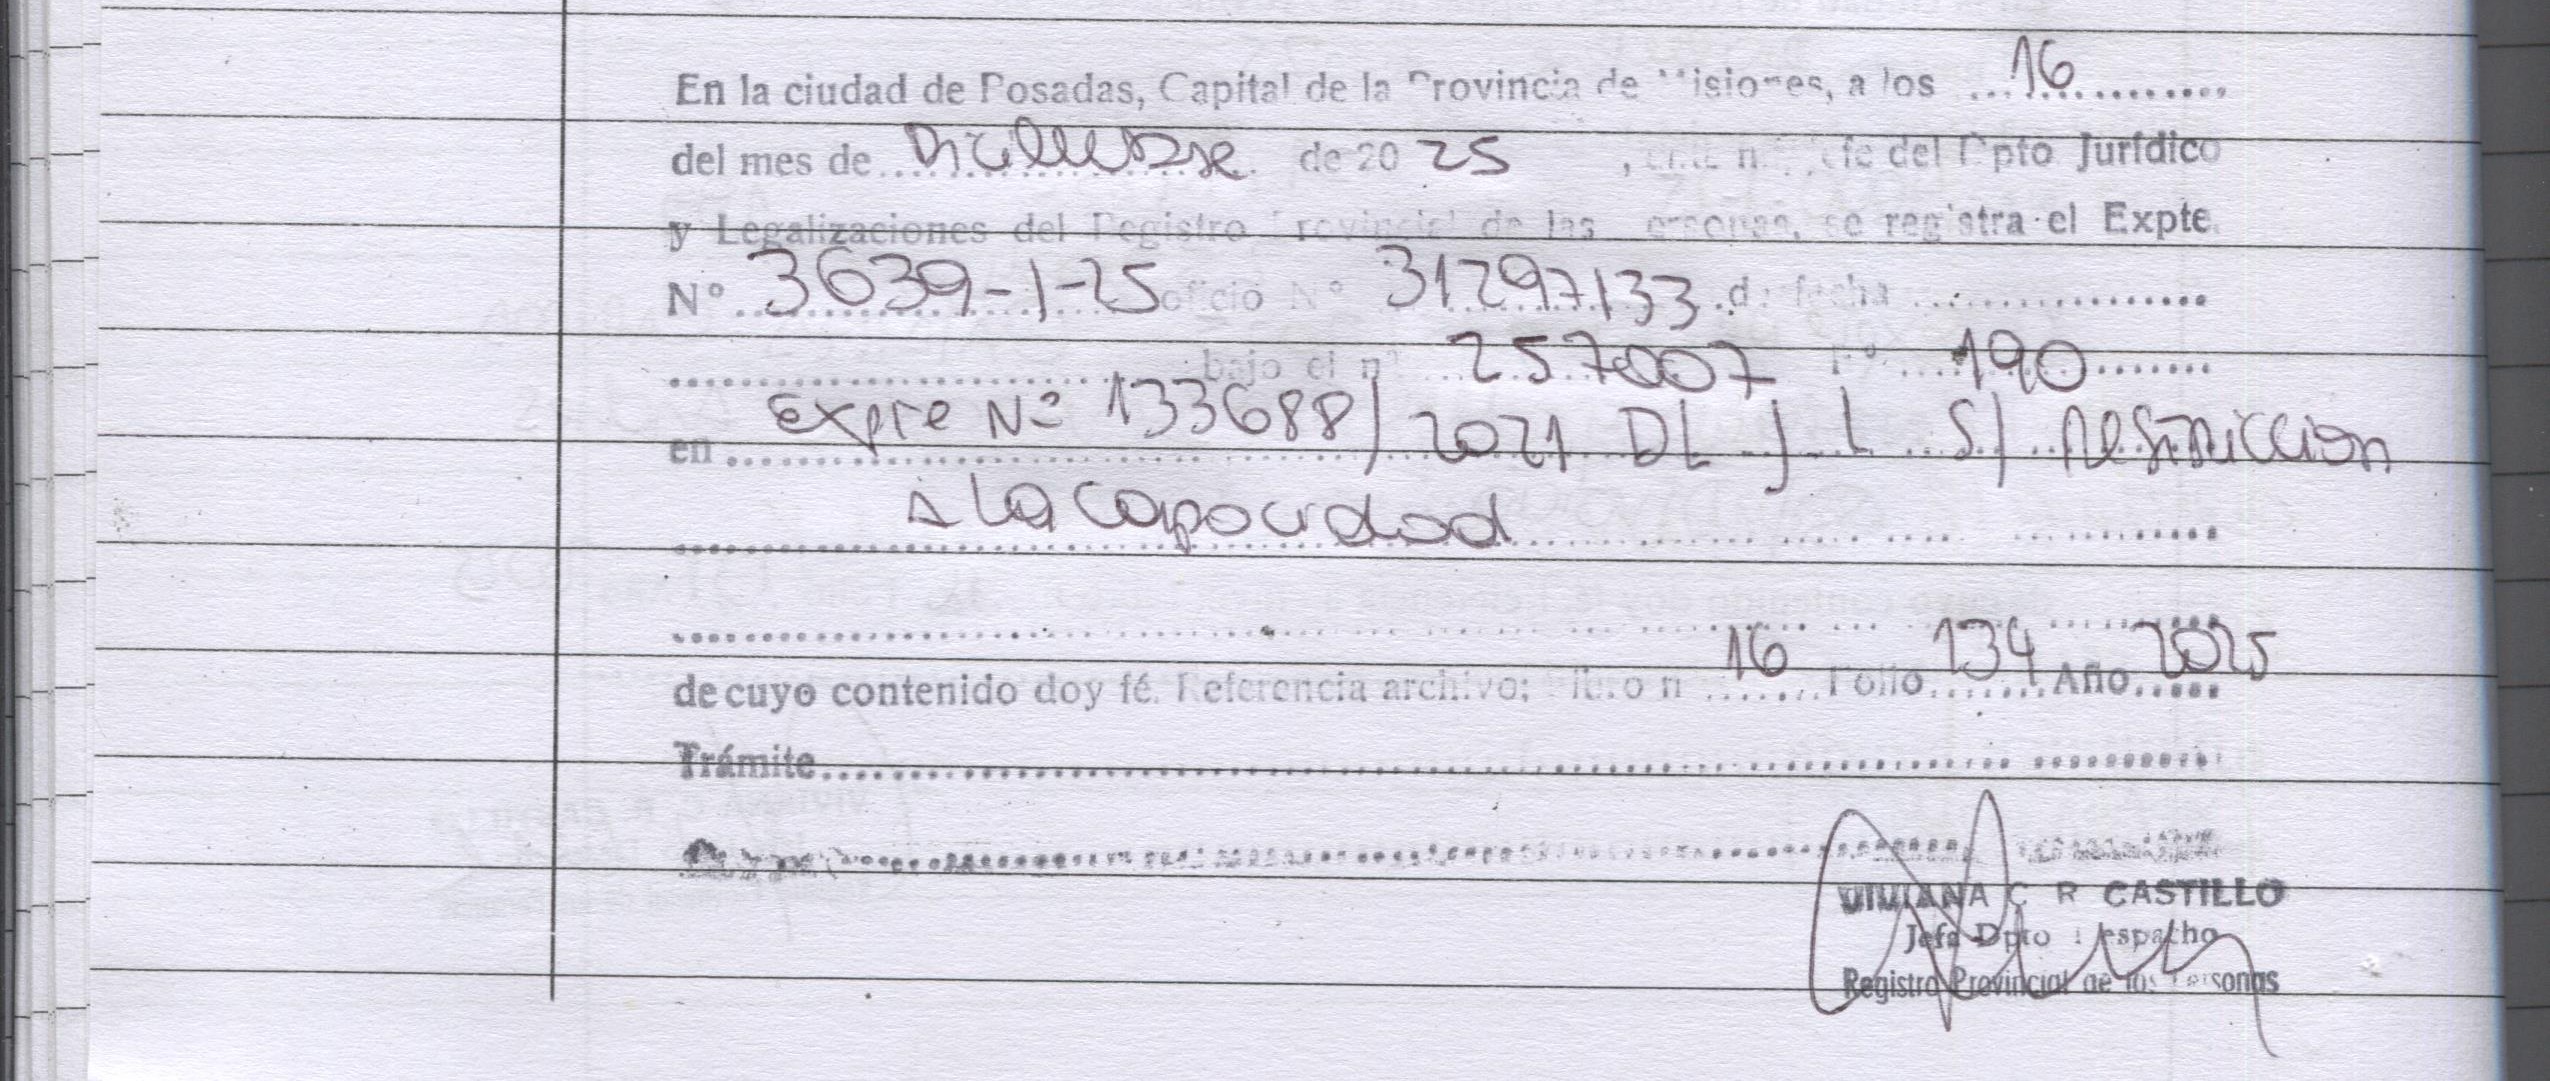 En la ciudad de Posadas, Capital de la Provincia de Misiones, a los ...16............
del mes de Diciembre de 20 25, ante mi Jefe del Dpto Jurídico
y Legalizaciones del Registro Provincial de las Personas, se registra el Expte.
Nº 3639-1-25 oficio Nº 31297133 de fecha ..................
.......................... bajo el nº 257007 Fº 190.......
en Expte Nº 133688/2021 DL J L S/ Restriccion
a la capacidad
de cuyo contenido doy fé. Referencia archivo; Libro nº 16 Folio 134 Año 2025
Trámite..........................................
VIVIANA C R CASTILLO
Jefa Dpto Despacho
Registro Provincial de las Personas